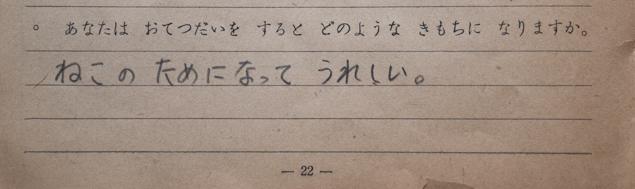 。 あなたは おてつだいを すると どのような きもちに なりますか。
ねこの ためになって うれしい。
— 22 —